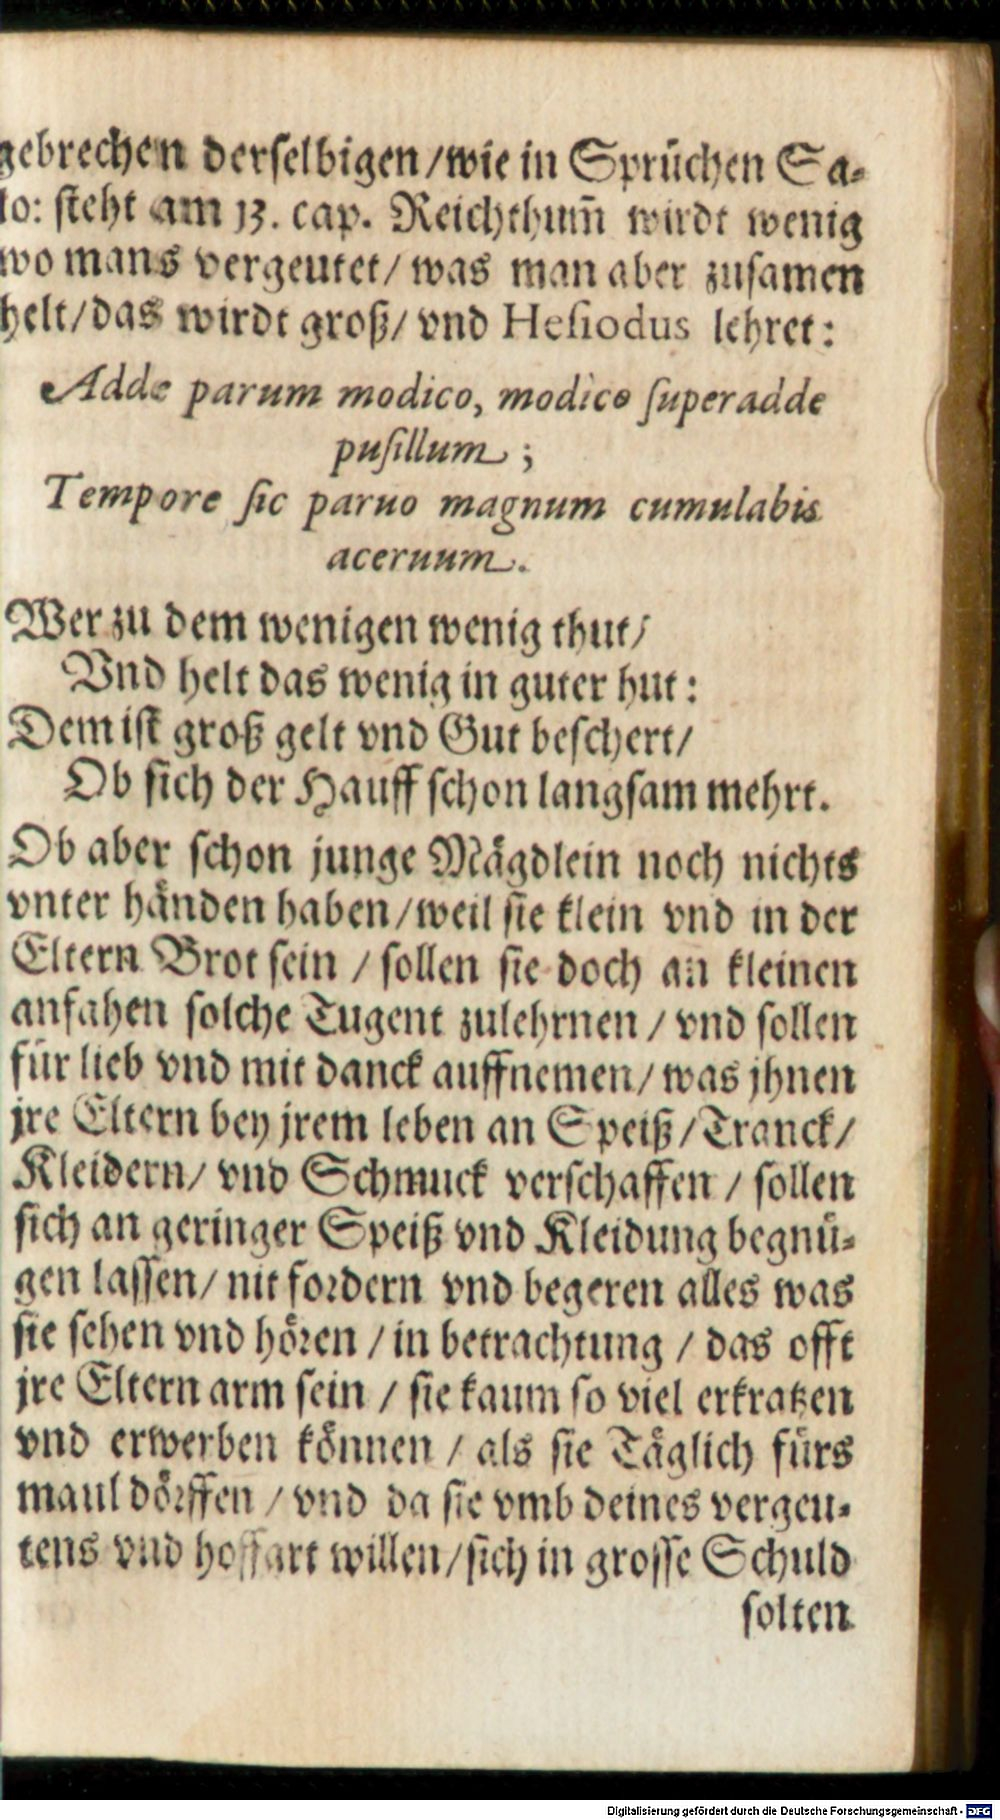 gebrechen derſelbigen / wie in Sprüchen Sa-
lo: ſteht am 13. cap. Reichthum̃ wirdt wenig
wo mans vergeutet / was man aber zuſamen
helt / das wirdt groß / vnd Heſiodus lehret:
Adde parum modico, modico ſuperadde
puſillum ;
Tempore ſic paruo magnum cumulabis
aceruum.
Wer zu dem wenigen wenig thut /
Vnd helt das wenig in guter hut :
Dem iſt groß gelt vnd Gut beſchert /
Ob ſich der Hauff ſchon langſam mehrt.
Ob aber ſchon junge Mägdlein noch nichts
vnter händen haben / weil ſie klein vnd in der
Eltern Brot ſein / ſollen ſie doch an kleinen
anfahen ſolche Tugent zulehrnen / vnd ſollen
für lieb vnd mit danck auffnemen / was jhnen
jre Eltern bey jrem leben an Speiß / Tranck /
Kleidern / vnd Schmuck verſchaffen / ſollen
ſich an geringer Speiß vnd Kleidung begnü-
gen laſſen / nit fordern vnd begeren alles was
ſie ſehen vnd hören / in betrachtung / das offt
jre Eltern arm ſein / ſie kaum ſo viel erkratzen
vnd erwerben können / als ſie Täglich fürs
maul dörffen / vnd da ſie vmb deines vergeu-
tens vnd hoffart willen / ſich in groſſe Schuld
ſolten
Digitalisierung gefördert durch die Deutsche Forschungsgemeinschaft - DFG